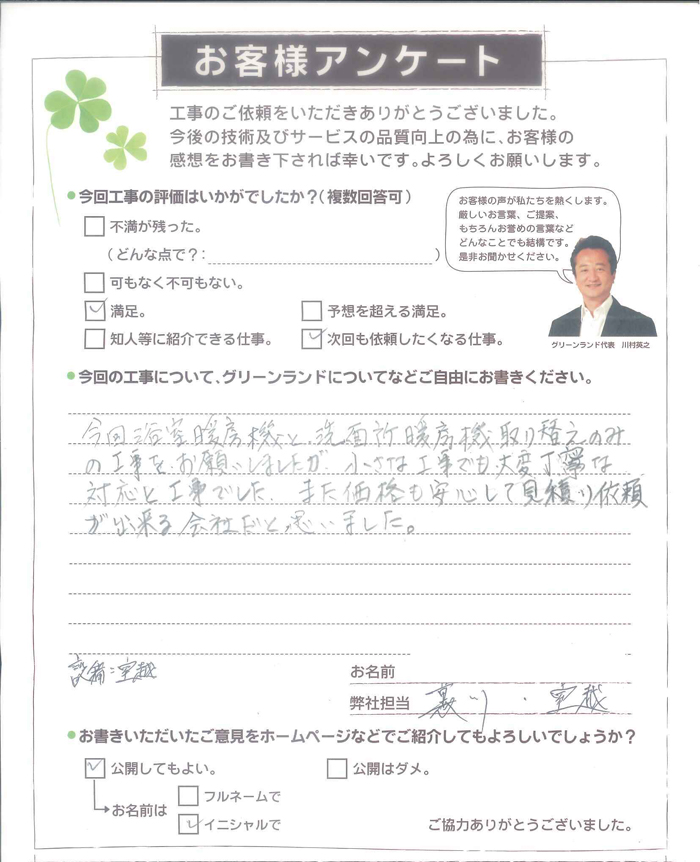 お客様アンケート
工事のご依頼をいただきありがとうございました。
今後の技術及びサービスの品質向上の為に、お客様の
感想をお書き下されば幸いです。よろしくお願いします。
今回工事の評価はいかがでしたか？（複数回答可）
不満が残った。
（どんな点で？：　）
可もなく不可もない。
満足。
予想を超える満足。
知人等に紹介できる仕事。
次回も依頼したくなる仕事。
お客様の声が私たちを熱くします。
厳しいお言葉、ご提案、
もちろんお誉めの言葉など
どんなことでも結構です。
是非お聞かせください。
グリーンランド代表　川村英之
今回の工事について、グリーンランドについてなどご自由にお書きください。
今回浴室暖房機と、洗面所暖房機取り替えのみ
の工事を、お願いしましたが、小さな工事でも大変丁寧な
対応と工事でした。また価格も安心して見積り依頼
が出来る会社だと思いました。
設備：室越
お名前
弊社担当　裏川・室越
お書きいただいたご意見をホームページなどでご紹介してもよろしいでしょうか？
公開してもよい。
公開はダメ。
お名前は
フルネームで
イニシャルで
ご協力ありがとうございました。